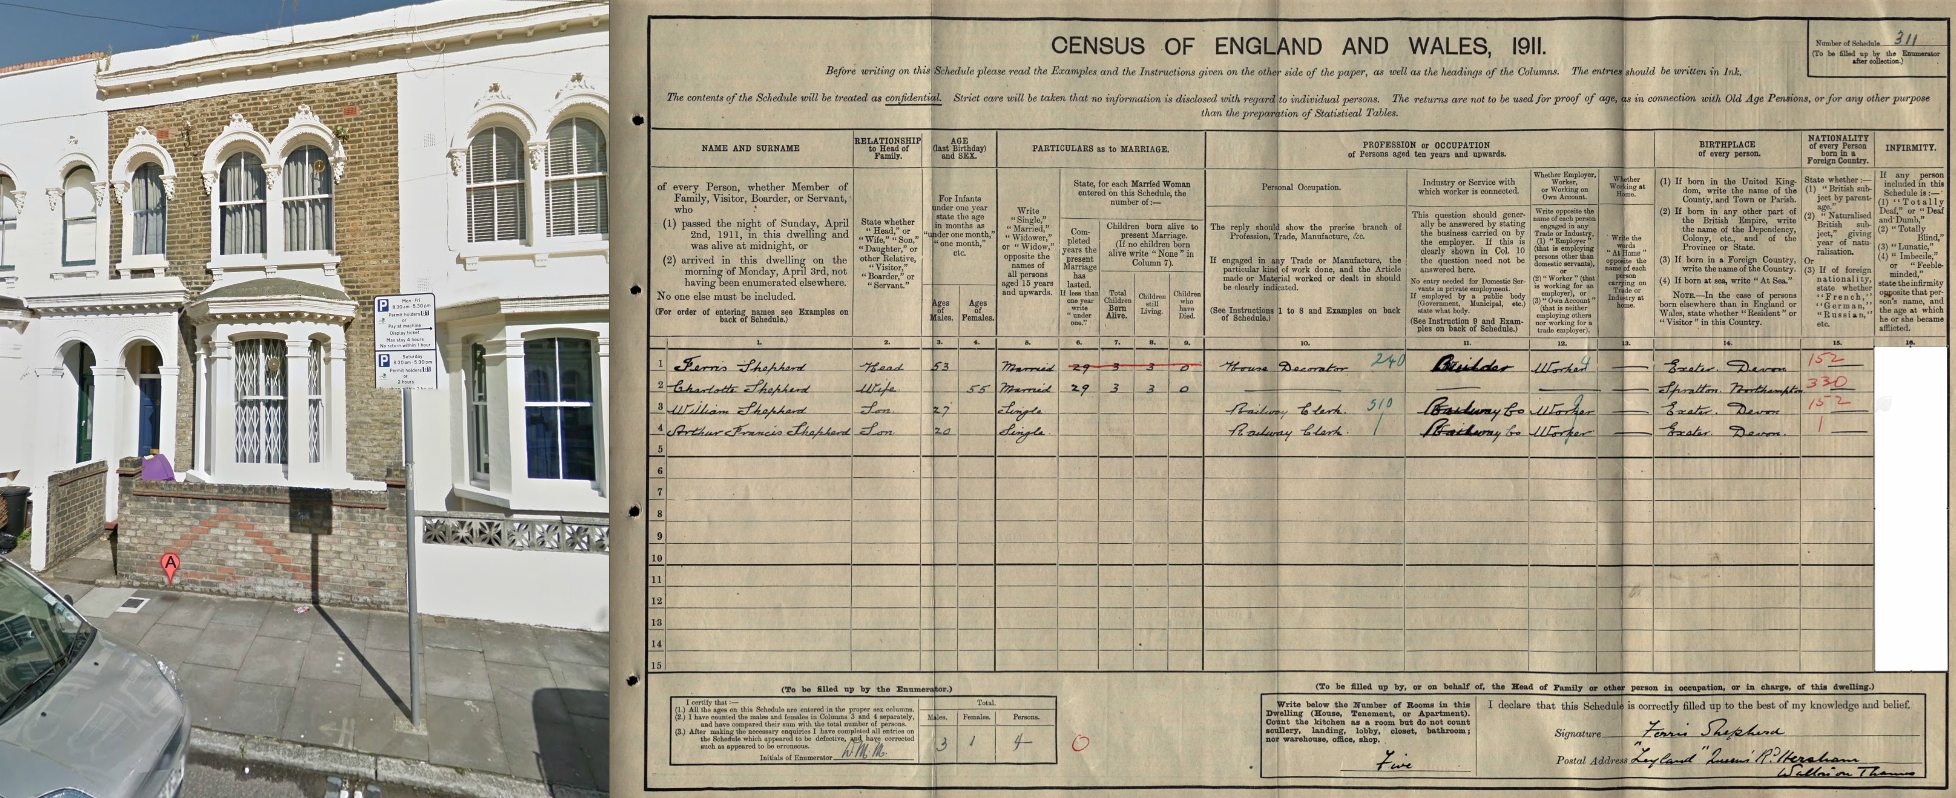 Mon - Fri
8.30 am - 5.30 pm
Permit holders
or
Pay at machine
Display ticket
Max stay 4 hours
No return within 1 hour
Saturday
8.30 am - 5.30 pm
Permit holders
or
2 hours
A
CENSUS OF ENGLAND AND WALES, 1911.
Number of Schedule 311
(To be filled up by the Enumerator after collection.)
Before writing on this Schedule please read the Examples and the Instructions given on the other side of the paper, as well as the headings of the Columns. The entries should be written in Ink.
The contents of the Schedule will be treated as confidential. Strict care will be taken that no information is disclosed with regard to individual persons. The returns are not to be used for proof of age, as in connection with Old Age Pensions, or for any other purpose
than the preparation of Statistical Tables.
NAME AND SURNAME
of every Person, whether Member of Family, Visitor, Boarder, or Servant, who
(1) passed the night of Sunday, April 2nd, 1911, in this dwelling and was alive at midnight, or
(2) arrived in this dwelling on the morning of Monday, April 3rd, not having been enumerated elsewhere.
No one else must be included.
(For order of entering names see Examples on back of Schedule.)
RELATIONSHIP to Head of Family.
State whether "Head," or "Wife," "Son," "Daughter," or other Relative, "Visitor," "Boarder," or "Servant."
AGE (last Birthday) and SEX.
For Infants under one year state the age in months as "under one month," "one month," etc.
Ages of Males.
Ages of Females.
PARTICULARS as to MARRIAGE.
Write "Single," "Married," "Widower," or "Widow," opposite the names of all persons aged 15 years and upwards.
State, for each Married Woman entered on this Schedule, the number of :—
Completed years the present Marriage has lasted. If less than one year write "under one."
Children born alive to present Marriage. (If no children born alive write "None" in Column 7).
Total Children Born Alive.
Children still Living.
Children who have Died.
PROFESSION or OCCUPATION
of Persons aged ten years and upwards.
Personal Occupation.
The reply should show the precise branch of Profession, Trade, Manufacture, &c.
If engaged in any Trade or Manufacture, the particular kind of work done, and the Article made or Material worked or dealt in should be clearly indicated.
(See Instructions 1 to 8 and Examples on back of Schedule.)
Industry or Service with which worker is connected.
This question should generally be answered by stating the business carried on by the employer. If this is clearly shown in Col. 10 the question need not be answered here.
No entry needed for Domestic Servants in private employment. If employed by a public body (Government, Municipal, etc.) state what body.
(See Instruction 9 and Examples on back of Schedule.)
Whether Employer, Worker, or Working on Own Account.
Write opposite the name of each person engaged in any Trade or Industry, (1) "Employer" (that is employing persons other than domestic servants), or (2) "Worker" (that is working for an employer), or (3) "Own Account" (that is neither employing others nor working for a trade employer).
Whether Working at Home.
Write the words "At Home" opposite the name of each person carrying on Trade or Industry at home.
BIRTHPLACE of every person.
(1) If born in the United Kingdom, write the name of the County, and Town or Parish.
(2) If born in any other part of the British Empire, write the name of the Dependency, Colony, etc., and of the Province or State.
(3) If born in a Foreign Country, write the name of the Country.
(4) If born at sea, write "At Sea."
NOTE.—In the case of persons born elsewhere than in England or Wales, state whether "Resident" or "Visitor" in this Country.
NATIONALITY of every Person born in a Foreign Country.
State whether :—
(1) "British subject by parentage."
(2) "Naturalised British subject," giving year of naturalisation.
Or
(3) If of foreign nationality, state whether "French," "German," "Russian," etc.
INFIRMITY.
If any person included in this Schedule is :—
(1) "Totally Deaf," or "Deaf and Dumb,"
(2) "Totally Blind,"
(3) "Lunatic,"
(4) "Imbecile," or "Feeble-minded,"
state the infirmity opposite that person's name, and the age at which he or she became afflicted.
1. 2. 3. 4. 5. 6. 7. 8. 9. 10. 11. 12. 13. 14. 15. 16.
1 Ferris Shepherd Head 53 Married 29 3 3 0 House Decorator 240 Builder Worker — Exeter. Devon 152
2 Charlotte Shepherd Wife 55 Married 29 3 3 0 — — — — Spratton Northampton 330
3 William Shepherd Son 27 Single Railway Clerk. 510 Railway Co Worker — Exeter. Devon 152
4 Arthur Francis Shepherd Son 20 Single Railway Clerk. Railway Co Worker — Exeter. Devon. 1
5
6
7
8
9
10
11
12
13
14
15
(To be filled up by the Enumerator.)
I certify that :—
(1.) All the ages on this Schedule are entered in the proper sex columns.
(2.) I have counted the males and females in Columns 3 and 4 separately, and have compared their sum with the total number of persons.
(3.) After making the necessary enquiries I have completed all entries on the Schedule which appeared to be defective, and have corrected such as appeared to be erroneous.
Initials of Enumerator
Total.
Males. Females. Persons.
3 1 4
0
(To be filled up by, or on behalf of, the Head of Family or other person in occupation, or in charge, of this dwelling.)
Write below the Number of Rooms in this Dwelling (House, Tenement, or Apartment). Count the kitchen as a room but do not count scullery, landing, lobby, closet, bathroom ; nor warehouse, office, shop.
Five
I declare that this Schedule is correctly filled up to the best of my knowledge and belief.
Signature Ferris Shepherd
Postal Address "Leyland" Queen's Rd. Hersham
Walton on Thames